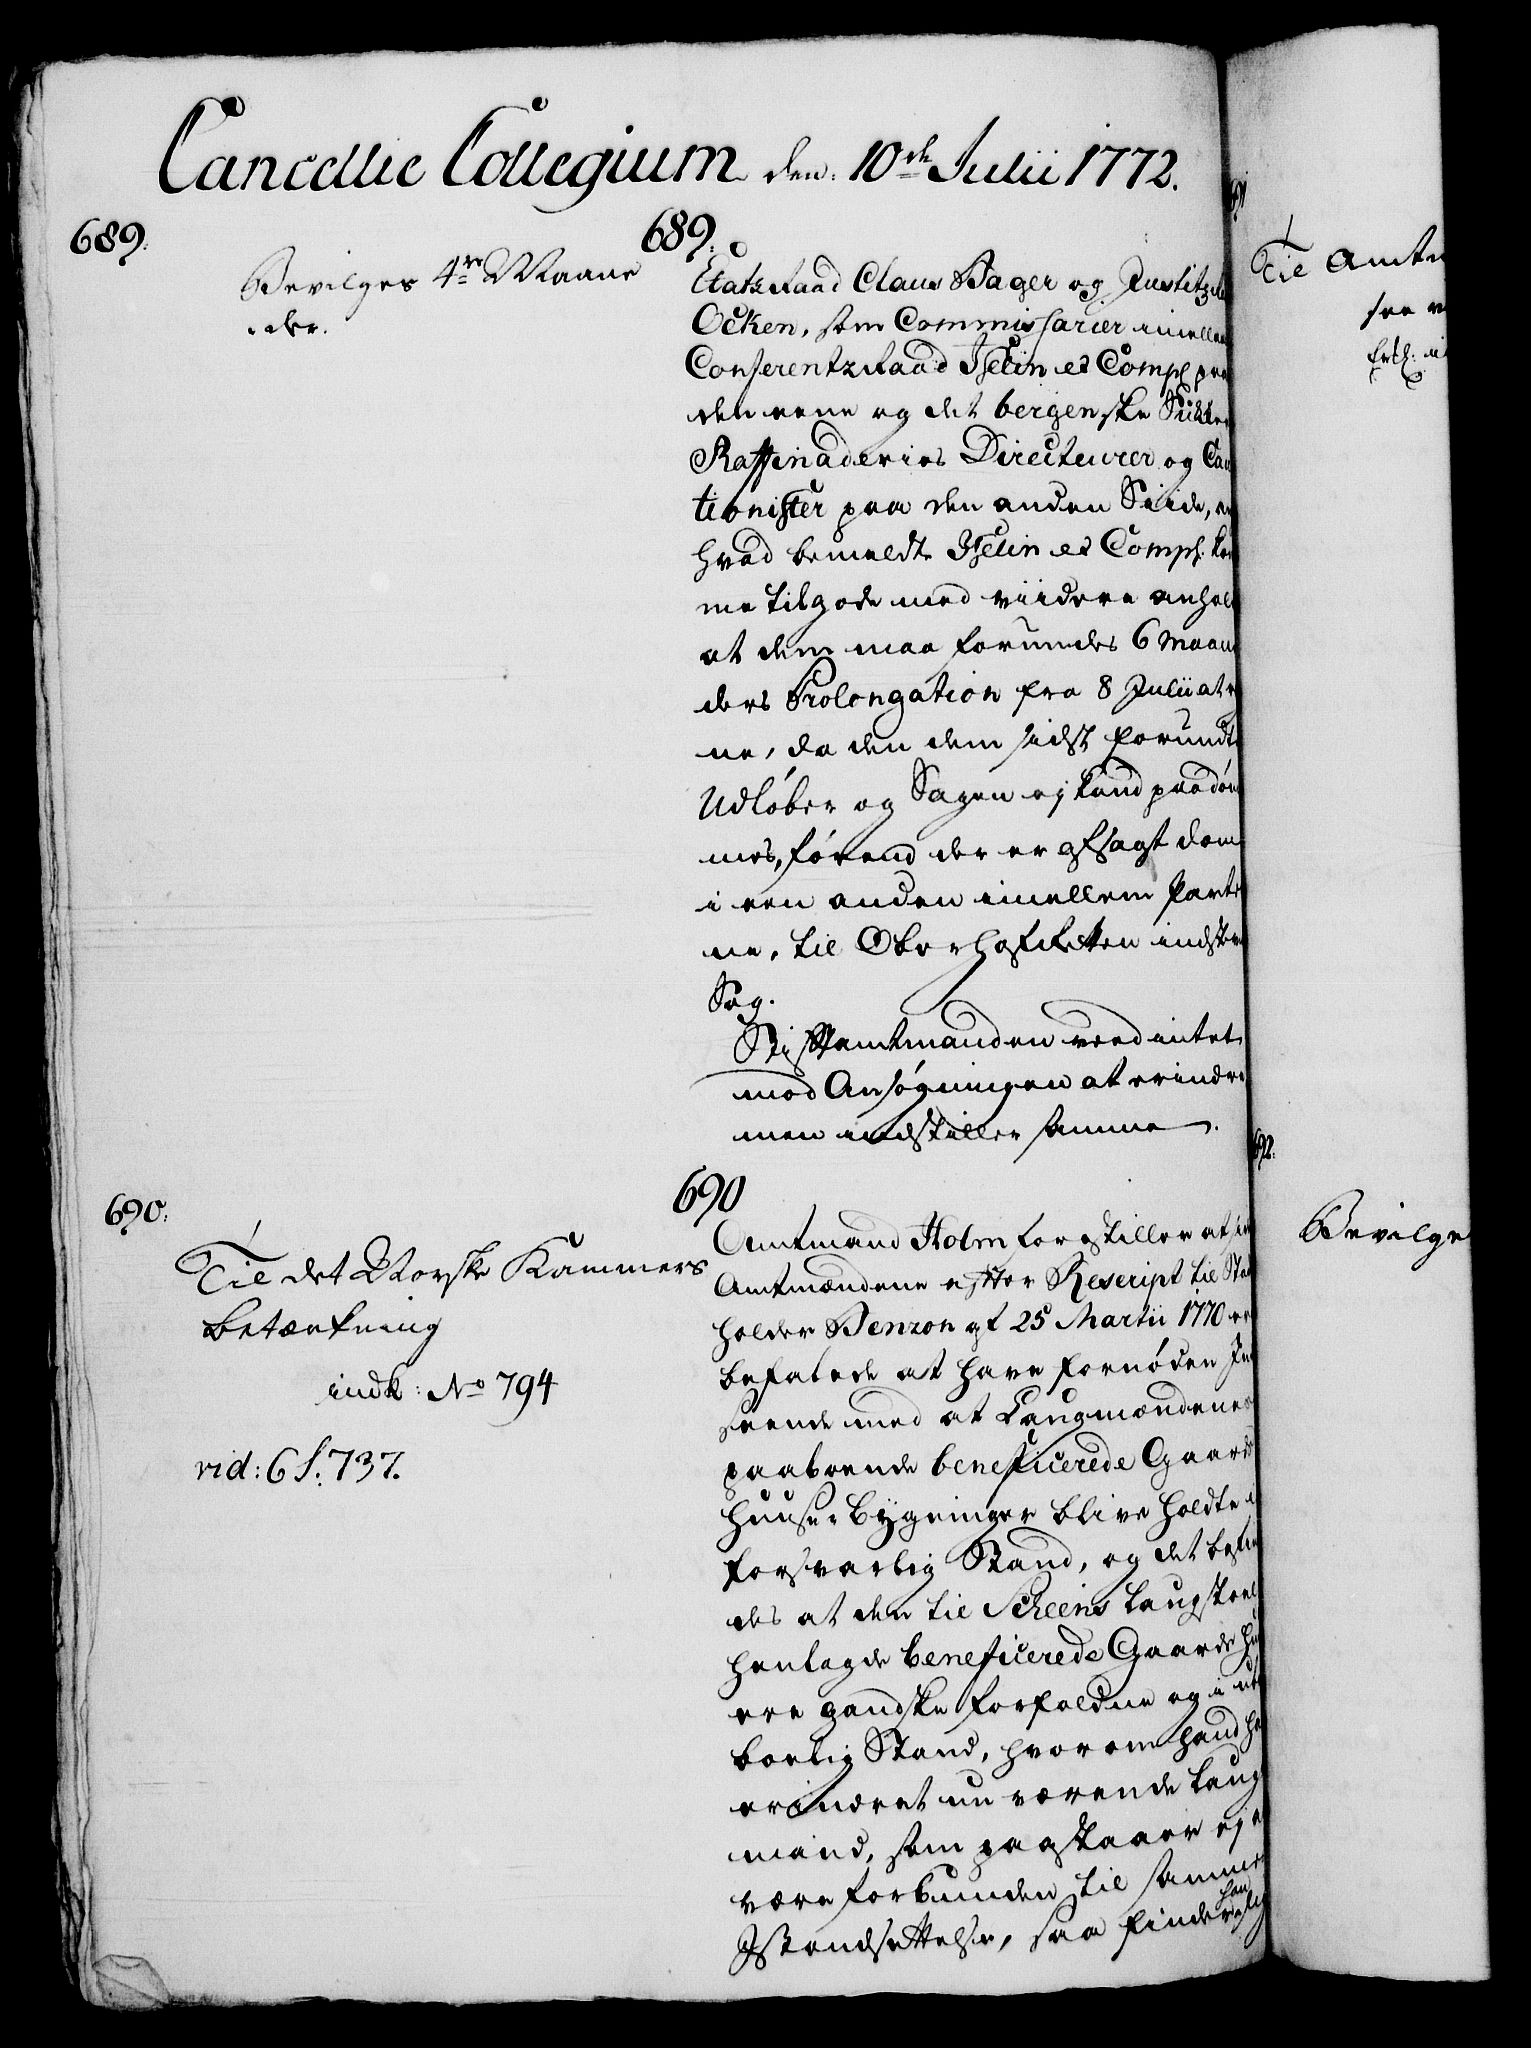 Cancellie Collegium den: 10de Julii 1772.
689:
Bevilges 4re Maane
der.
689.
Etatzraad Claus Fasger og Justitz
Ocken, som Commissarier imellem
Conferentzraad Iselin et Comp: paa
den eene og det bergenske Sukker
Raffinaderies Directeurer og Cau
tionister paa den anden Siide,
hvad bemeldte Iselin et Comp: kom
me tilgode med viidere anhold
at dem maa forundes 6 Maan
ders Prolongation fra 8 Julii at
ne, da den dem sidst forundte
Udløber og Sagen ej kand paadøm
mes,førend der er afsagt dom
i een anden imellem Parter
ne, til Oberhofretten indstevn
Sag.
Stiftamtmanden veed intet
mod Ansøgningen at erindre
men indstiller samme.
690:
Til det Norske Kammers
betænkning
indk: No 794
vid: 6 S. 737.
690
Amtmand Holm forestiller at
Amtmændene efter Rescript til Stat
holder Benzon af 25 Martii 1770 er
befalede at have fornøden Ind
seende med at Laugmændenes
paaboende beneficerede Gaarde
Huuse-bygninger blive holdte i
forsvarlig Stand, og det befin
des at den til Scheens Laugstoel
henlagde beneficerede Gaards
ere gandske forfaldne og i
boelig Stand, hvorom hand
erindret nu værende Laug
mand, som paastaaer ej at
være forbunden til samme
Istandsættelse, saa finder han
Til Amtm
see
Bevilge
692.